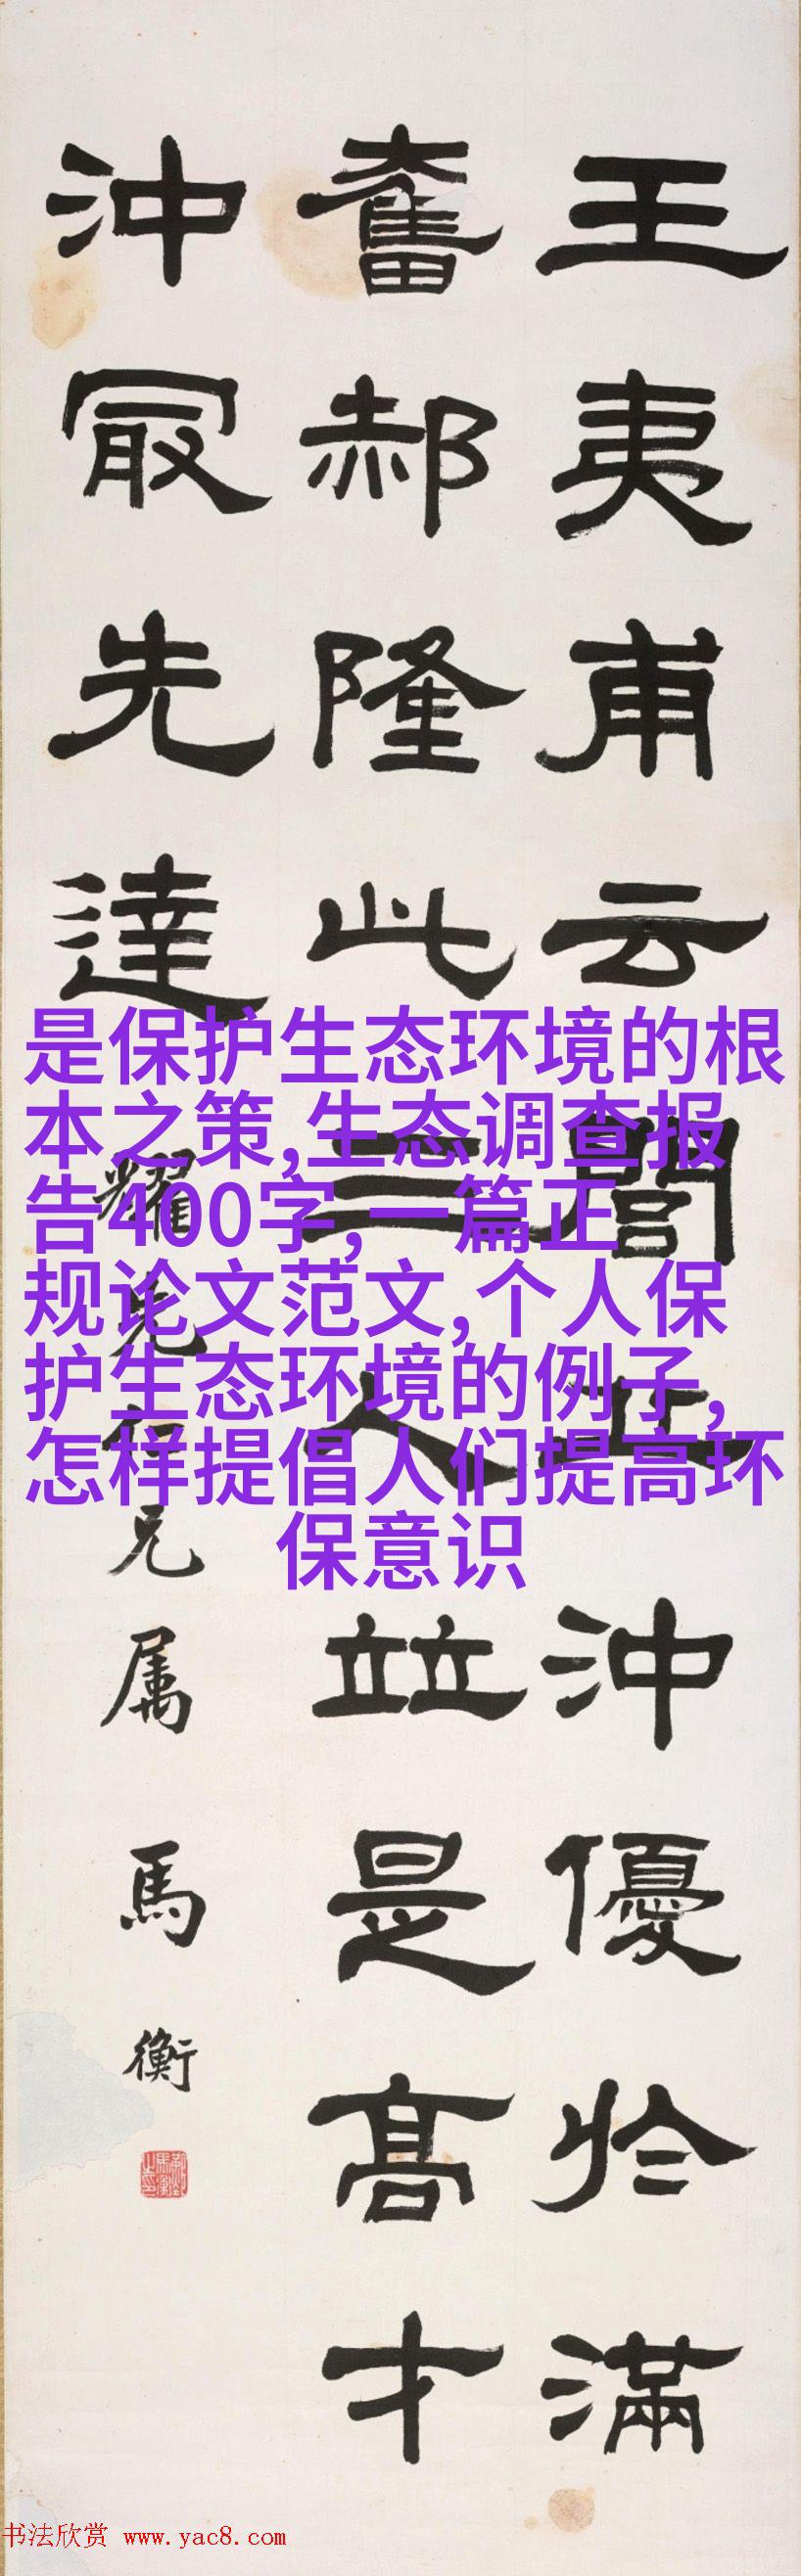 王夷甫云閭丘沖優於滿
奮郝隆此三人竝是高才
沖冣先達
耀先仁兄属
馬衡
是保护生态环境的根
本之策,生态调查报
告400字,一篇正
规论文范文,个人保
护生态环境的例子,
怎样提倡人们提高环
保意识
书法欣赏 www.yac8.com